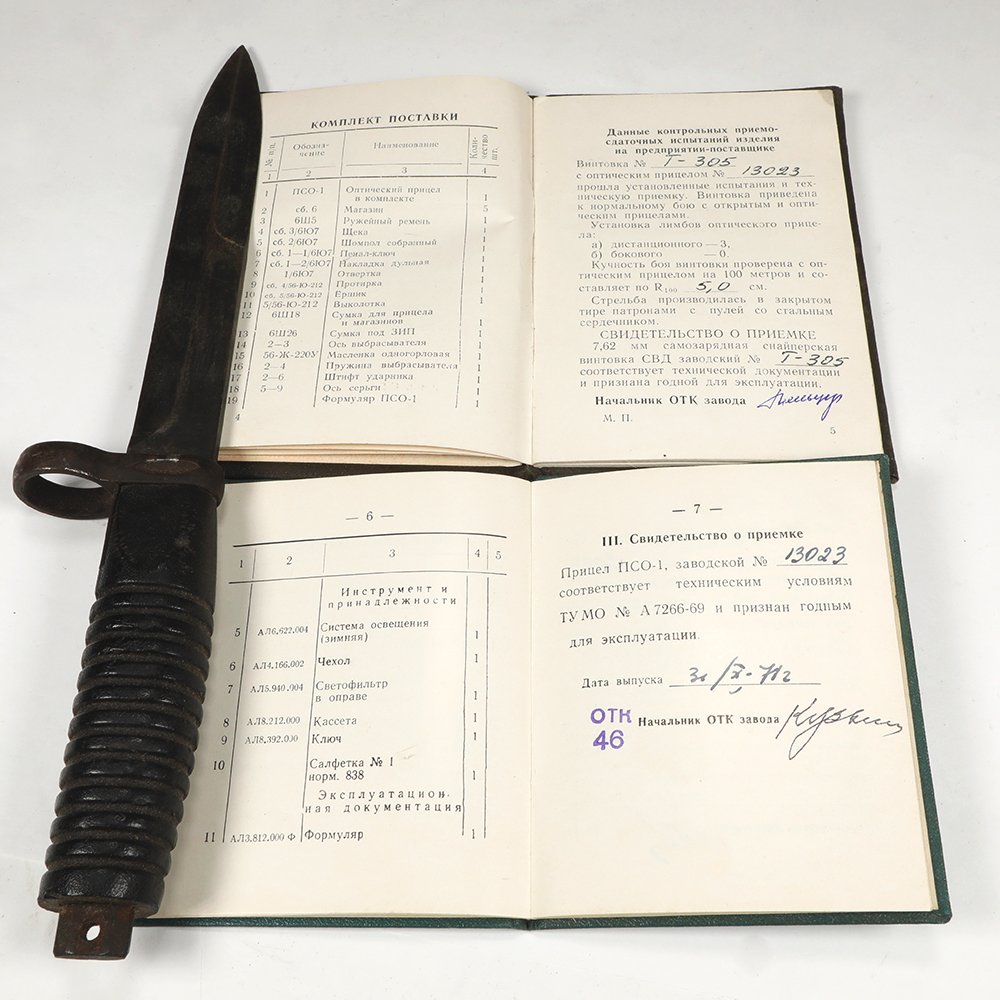 КОМПЛЕКТ ПОСТАВКИ
№ п.п. Обозна- Наименование Коли-
чение чество
шт.
1 2 3 4
1 ПСО-1 Оптический прицел
в комплекте 1
2 сб. 6 Магазин 5
3 6Ш5 Ружейный ремень 1
4 сб. 3/6Ю7 Щека 1
5 сб. 2/6Ю7 Шомпол собранный 1
6 сб. 1—1/6Ю7 Пенал-ключ 1
7 сб. 1—2/6Ю7 Накладка дульная 1
8 1/6Ю7 Отвертка 1
9 сб. 4/56-Ю-212 Протирка 1
10 сб. 5/56-Ю-212 Ершик 1
11 5/56-Ю-212 Выколотка 1
12 6Ш18 Сумка для прицела
и магазинов 1
13 6Ш26 Сумка под ЗИП 1
14 2—3 Ось выбрасывателя 1
15 56-Ж-220У Масленка одногорловая 1
16 2—4 Пружина выбрасывателя 1
17 2—6 Штифт ударника 1
18 5—9 Ось серьги 1
19 Формуляр ПСО-1 1
4
Данные контрольных приемо-
сдаточных испытаний изделия
на предприятии-поставщике
Винтовка № Т-305
с оптическим прицелом № 13023
прошла установленные испытания и тех-
ническую приемку. Винтовка приведена
к нормальному бою с открытым и опти-
ческим прицелами.
Установка лимбов оптического прице-
ла:
а) дистанционного — 3,
б) бокового — 0.
Кучность боя винтовки проверена с оп-
тическим прицелом на 100 метров и со-
ставляет по R100 5,0 см.
Стрельба производилась в закрытом
тире патронами с пулей со стальным
сердечником.
СВИДЕТЕЛЬСТВО О ПРИЕМКЕ
7,62 мм самозарядная снайперская
винтовка СВД заводский № Т-305
соответствует технической документации
и признана годной для эксплуатации.
Начальник ОТК завода
М. П.
5
— 6 —
1 2 3 4 5
Инструмент и
принадлежности
5 АЛ6.622.004 Система освещения
(зимняя) 1
6 АЛ4.166.002 Чехол 1
7 АЛ5.940.004 Светофильтр
в оправе 1
8 АЛ8.212.000 Кассета 1
9 АЛ8.392.000 Ключ 1
10 Салфетка № 1
норм. 838 1
Эксплуатацион-
ная документация
11 АЛ3.812.000 Ф Формуляр 1
— 7 —
III. Свидетельство о приемке
Прицел ПСО-1, заводской № 13023
соответствует техническим условиям
ТУ МО № А 7266-69 и признан годным
для эксплуатации.
Дата выпуска
ОТК Начальник ОТК завода
46